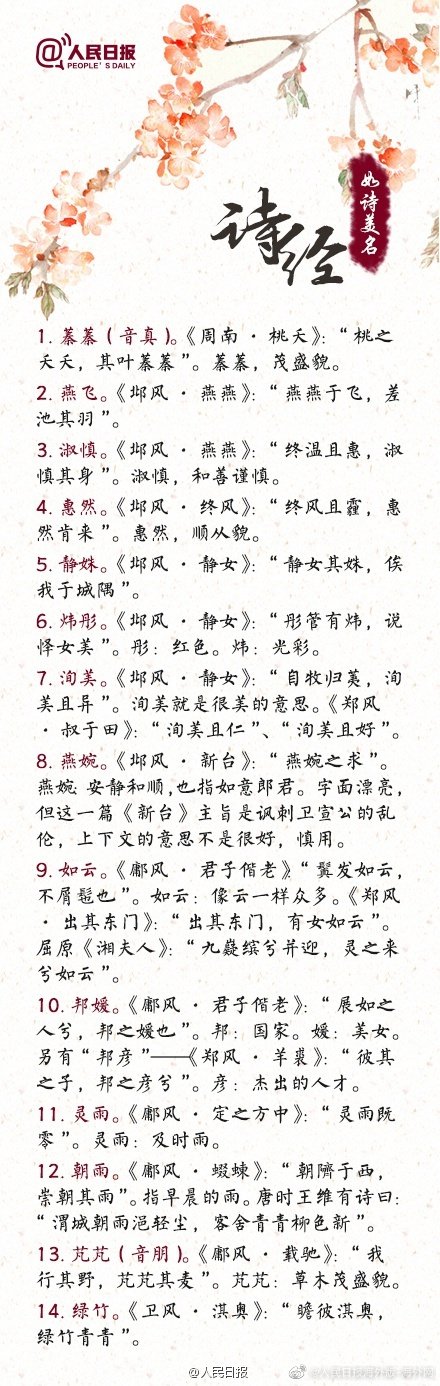 @人民日报
PEOPLE'S DAILY
如诗美名
诗经
1. 蓁蓁（音真）。《周南·桃夭》：“桃之
夭夭，其叶蓁蓁”。蓁蓁，茂盛貌。
2. 燕飞。《邶风·燕燕》：“燕燕于飞，差
池其羽”。
3. 淑慎。《邶风·燕燕》：“终温且惠，淑
慎其身”。淑慎，和善谨慎。
4. 惠然。《邶风·终风》：“终风且霾，惠
然肯来”。惠然，顺从貌。
5. 静姝。《邶风·静女》：“静女其姝，俟
我于城隅”。
6. 炜彤。《邶风·静女》：“彤管有炜，说
怿女美”。彤：红色。炜：光彩。
7. 洵美。《邶风·静女》：“自牧归荑，洵
美且异”。洵美就是很美的意思。《郑风
·叔于田》：“洵美且仁”、“洵美且好”。
8. 燕婉。《邶风·新台》：“燕婉之求”。
燕婉：安静和顺，也指如意郎君。字面漂亮，
但这一篇《新台》主旨是讽刺卫宣公的乱
伦，上下文的意思不是很好，慎用。
9. 如云。《鄘风·君子偕老》“鬒发如云，
不屑髢也”。如云：像云一样众多。《郑风
·出其东门》：“出其东门，有女如云”。
屈原《湘夫人》：“九嶷缤兮并迎，灵之来
兮如云”。
10. 邦媛。《鄘风·君子偕老》：“展如之
人兮，邦之媛也”。邦：国家。媛：美女。
另有“邦彦”——《郑风·羊裘》：“彼其
之子，邦之彦兮”。彦：杰出的人才。
11. 灵雨。《鄘风·定之方中》：“灵雨既
零”。灵雨：及时雨。
12. 朝雨。《鄘风·蝃蝀》：“朝隮于西，
崇朝其雨”。指早晨的雨。唐时王维有诗曰：
“渭城朝雨浥轻尘，客舍青青柳色新”。
13. 芃芃（音朋）。《鄘风·载驰》：“我
行其野，芃芃其麦”。芃芃：草木茂盛貌。
14. 绿竹。《卫风·淇奥》：“瞻彼淇奥，
绿竹青青”。
@人民日报
@人民日报海外版-海外网